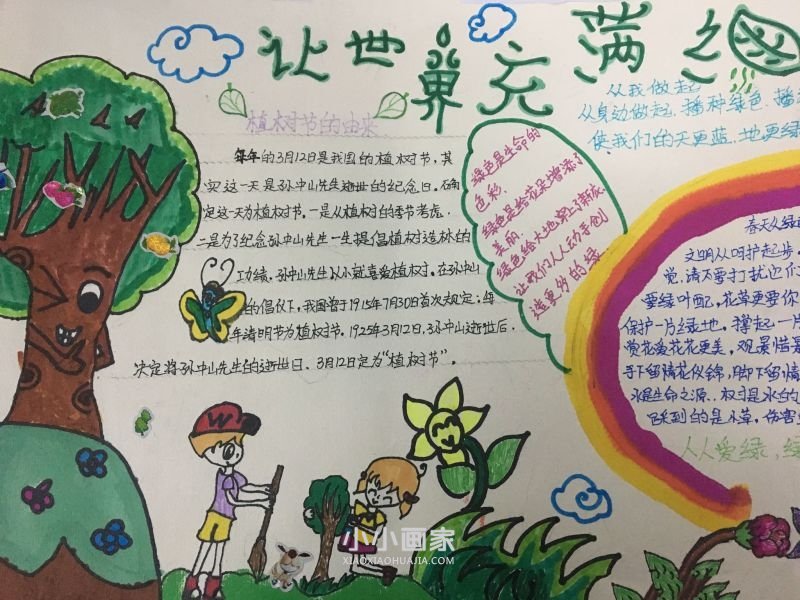 让世界充满
从我做起
从身边做起,播种绿色,播
使我们的天更蓝,地更绿
植树节的由来
每年的3月12日是我国的植树节,其
实这一天是孙中山先生逝世的纪念日。确
定这天为植树节。一是从植树的季节考虑,
二是为了纪念孙中山先生一生提倡植树造林的
功绩。孙中山先生从小就喜爱植树。在孙中山
的倡仪下,我国曾于1915年7月30日首次规定:每
年清明节为植树节。1925年3月12日,孙中山逝世后,
决定将孙中山先生的逝世日、3月12日定为“植树节”。
绿色是生命的
色彩,
绿色是给花朵增添了
美丽,
绿色给大地穿上了新衣,
让我们人人动手创
造更多的绿
春天么绿
文明从呵护起步,
觉,请不要打扰它们
要绿叶配,花草更要你
保护一片绿地,撑起一片
赏花爱花花更美,观景惜景
手下留情花似锦,脚下留情
水是生命之源,树是水的
踩到的是小草,伤害
人人爱绿,绿
W
小小画家
XIAOXIAOHUAJIA.COM